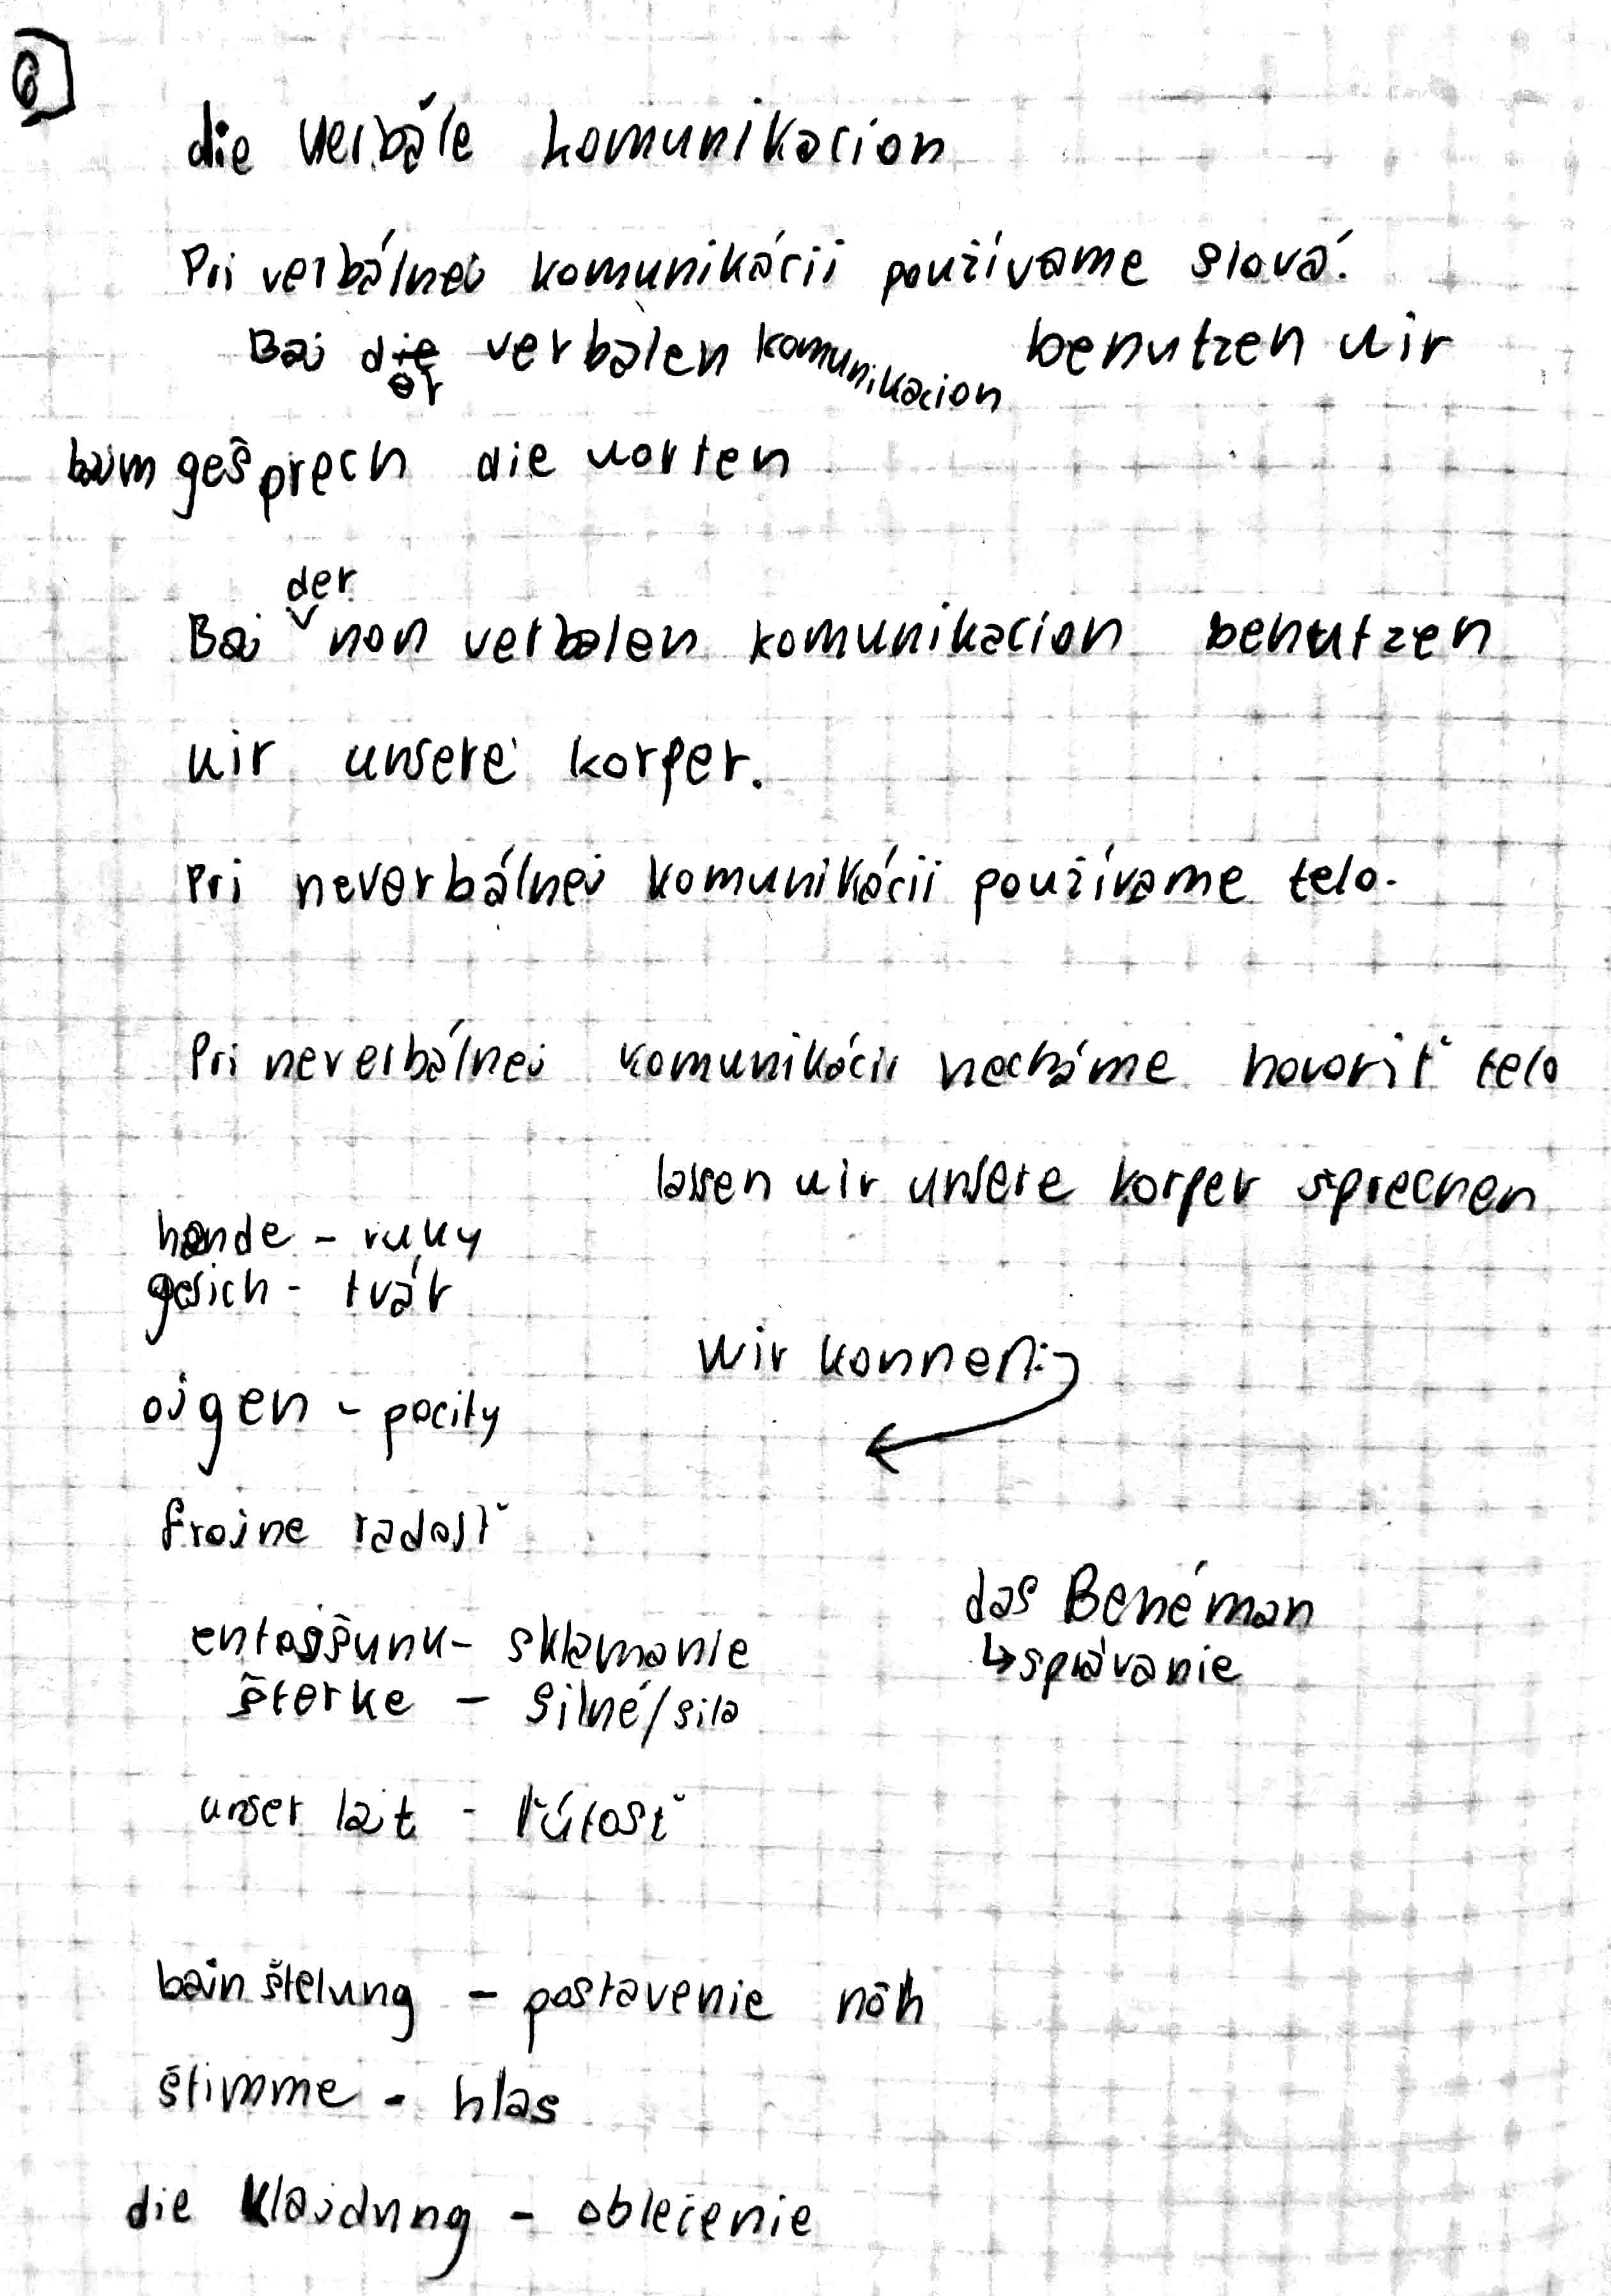 6
die verbále komunikacion
Pri verbálnej komunikácii používame slová.
Baj die verbalen komunikacion benutzen uir
er
bajm gešprech die uorten
der
Baj non verbalen komunikacion benutzen
uir unsere korper.
Pri neverbálnej komunikácii používame telo.
Pri neverbálnej komunikácii necháme hovoriť telo
lassen uir unsere korper šprechen
hande - ruky
gesich - tvár
Wir konnen:
ojgen - pocity
frojne radosť
das Beneman
entojšunk - sklamanie
↳ správanie
šterke - silné/sila
unser lajt - ľútosť
bajn štelung - postavenie nôh
štimme - hlas
die Klajdung - oblečenie